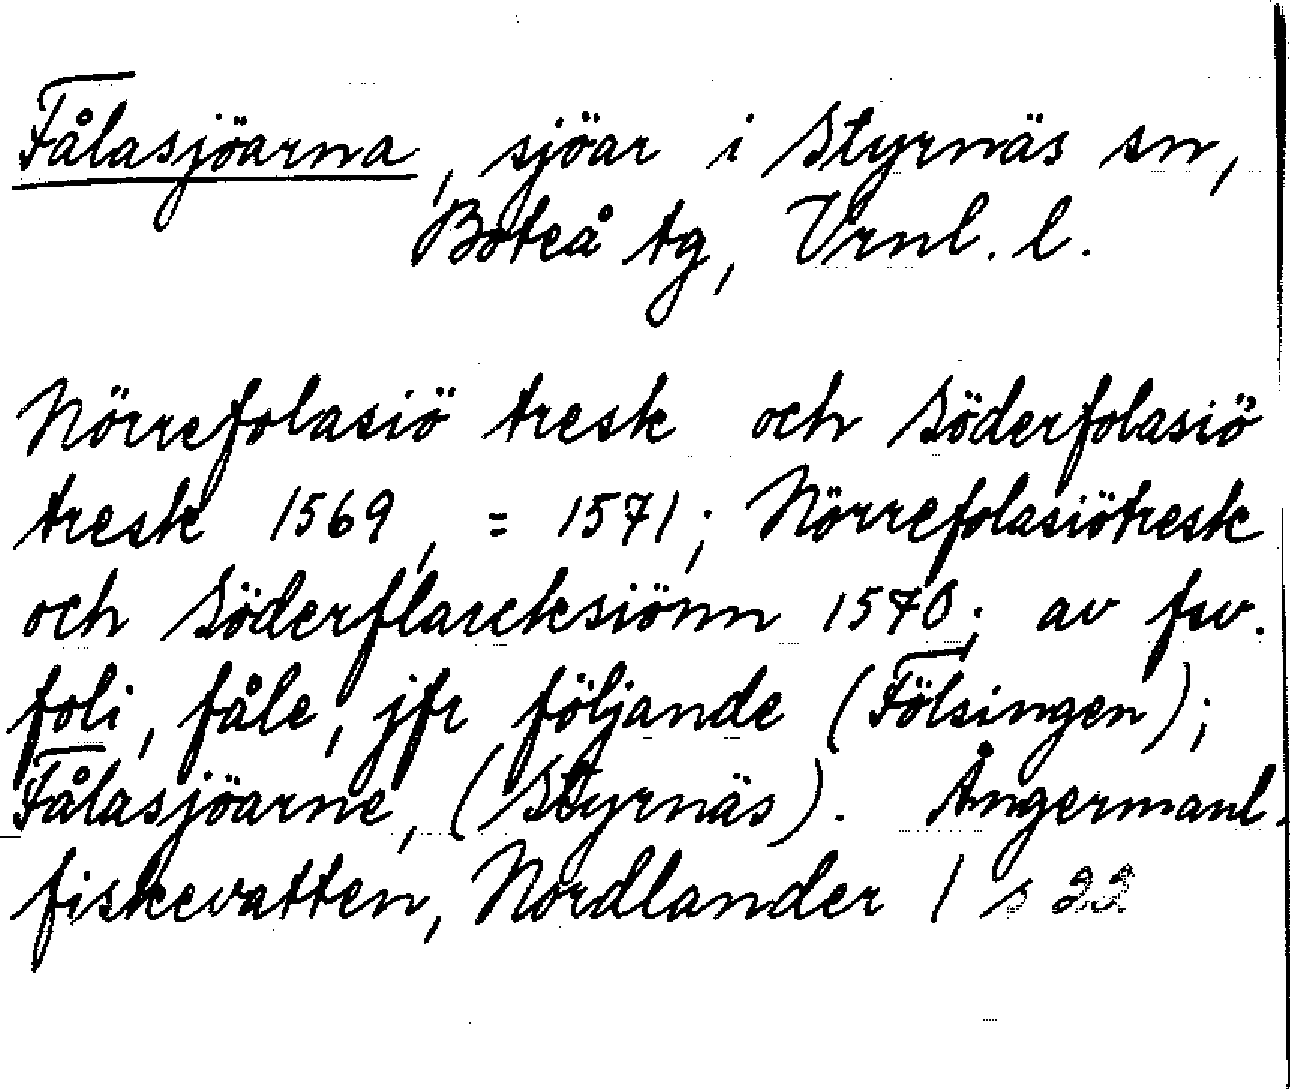 Fålasjöarna, sjöar i Styrnäs sn,
Boteå tg, Vrnl. l.
Nörrefolasiö tresk och Söderfolasiö
tresk 1569, = 1571; Nörrefolasiötresk
och Söderflarcksiönn 1570; av fsv.
foli, fåle, jfr följande (Fölsingen);
Fålasjöarne, (Styrnäs). Ångermanl.
fiskevatten, Nordlander 1 s 22